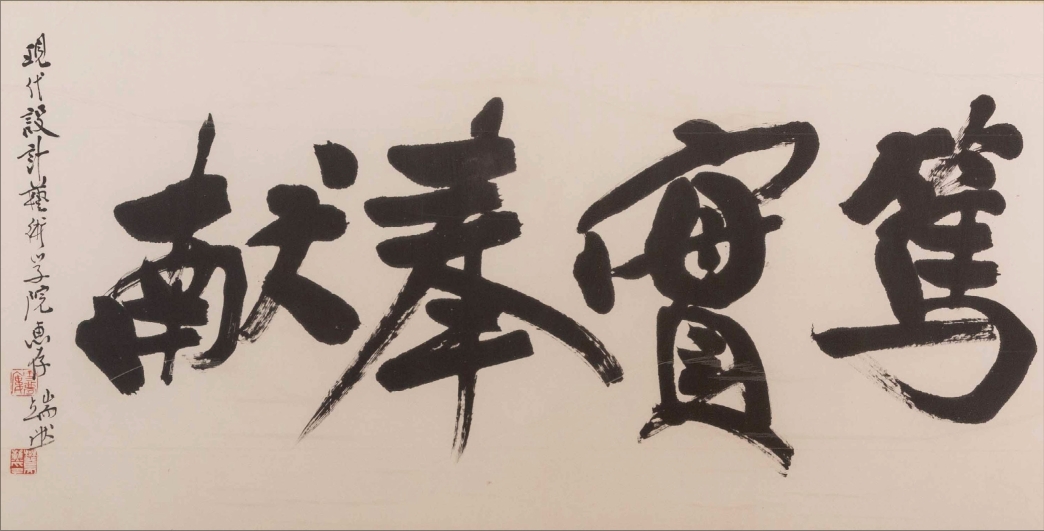 篤實奉献
現代設計藝術学院惠存 端